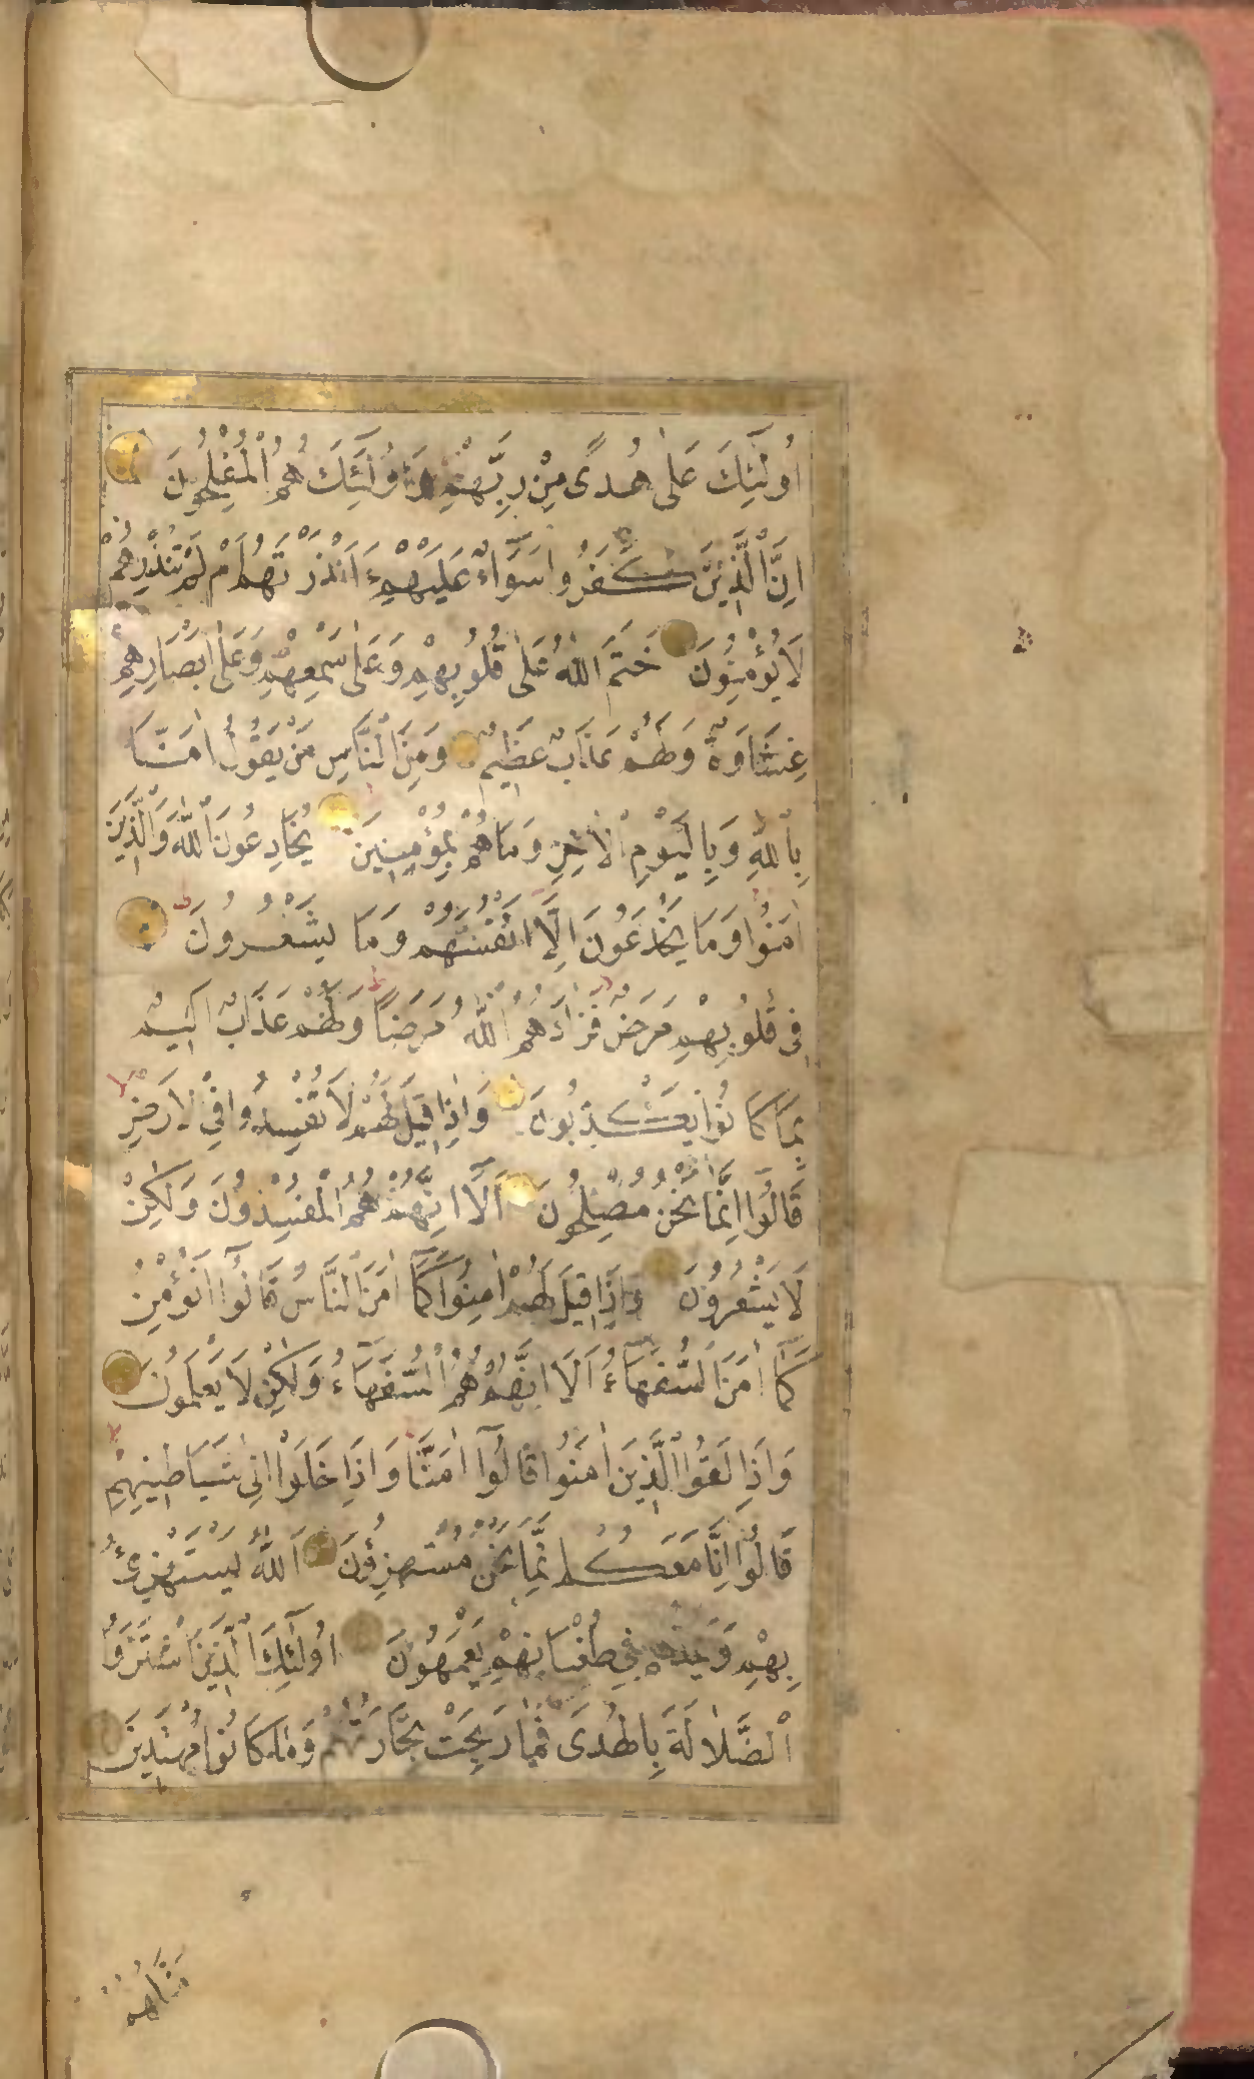 اُولٰٓئِكَ عَلٰى هُدًى مِنْ رَبِّهِمْ وَاُولٰٓئِكَ هُمُ الْمُفْلِحُونَ
اِنَّ الَّذِينَ كَفَرُوا سَوَآءٌ عَلَيْهِمْ ءَاَنْذَرْتَهُمْ اَمْ لَمْ تُنْذِرْهُمْ
لَا يُؤْمِنُونَ خَتَمَ اللّٰهُ عَلٰى قُلُوبِهِمْ وَعَلٰى سَمْعِهِمْ وَعَلٰٓى اَبْصَارِهِمْ
غِشَاوَةٌ وَلَهُمْ عَذَابٌ عَظِيمٌ وَمِنَ النَّاسِ مَنْ يَقُولُ اٰمَنَّا
بِاللّٰهِ وَبِالْيَوْمِ الْاٰخِرِ وَمَا هُمْ بِمُؤْمِنِينَ يُخَادِعُونَ اللّٰهَ وَالَّذِينَ
اٰمَنُوا وَمَا يَخْدَعُونَ اِلَّٓا اَنْفُسَهُمْ وَمَا يَشْعُرُونَ
فِى قُلُوبِهِمْ مَرَضٌ فَزَادَهُمُ اللّٰهُ مَرَضًا وَلَهُمْ عَذَابٌ اَلِيمٌ
بِمَا كَانُوا يَكْذِبُونَ وَاِذَا قِيلَ لَهُمْ لَا تُفْسِدُوا فِى الْاَرْضِ
قَالُوٓا اِنَّمَا نَحْنُ مُصْلِحُونَ اَلَٓا اِنَّهُمْ هُمُ الْمُفْسِدُونَ وَلٰكِنْ
لَا يَشْعُرُونَ وَاِذَا قِيلَ لَهُمْ اٰمِنُوا كَمَٓا اٰمَنَ النَّاسُ قَالُوٓا اَنُؤْمِنُ
كَمَٓا اٰمَنَ السُّفَهَٓاءُ اَلَٓا اِنَّهُمْ هُمُ السُّفَهَٓاءُ وَلٰكِنْ لَا يَعْلَمُونَ
وَاِذَا لَقُوا الَّذِينَ اٰمَنُوا قَالُوٓا اٰمَنَّا وَاِذَا خَلَوْا اِلٰى شَيَاطِينِهِمْ
قَالُوٓا اِنَّا مَعَكُمْ اِنَّمَا نَحْنُ مُسْتَهْزِؤُنَ اَللّٰهُ يَسْتَهْزِئُ
بِهِمْ وَيَمُدُّهُمْ فِى طُغْيَانِهِمْ يَعْمَهُونَ اُولٰٓئِكَ الَّذِينَ اشْتَرَوُا
الضَّلَالَةَ بِالْهُدٰى فَمَا رَبِحَتْ تِجَارَتُهُمْ وَمَا كَانُوا مُهْتَدِينَ
مَثَلُهُمْ